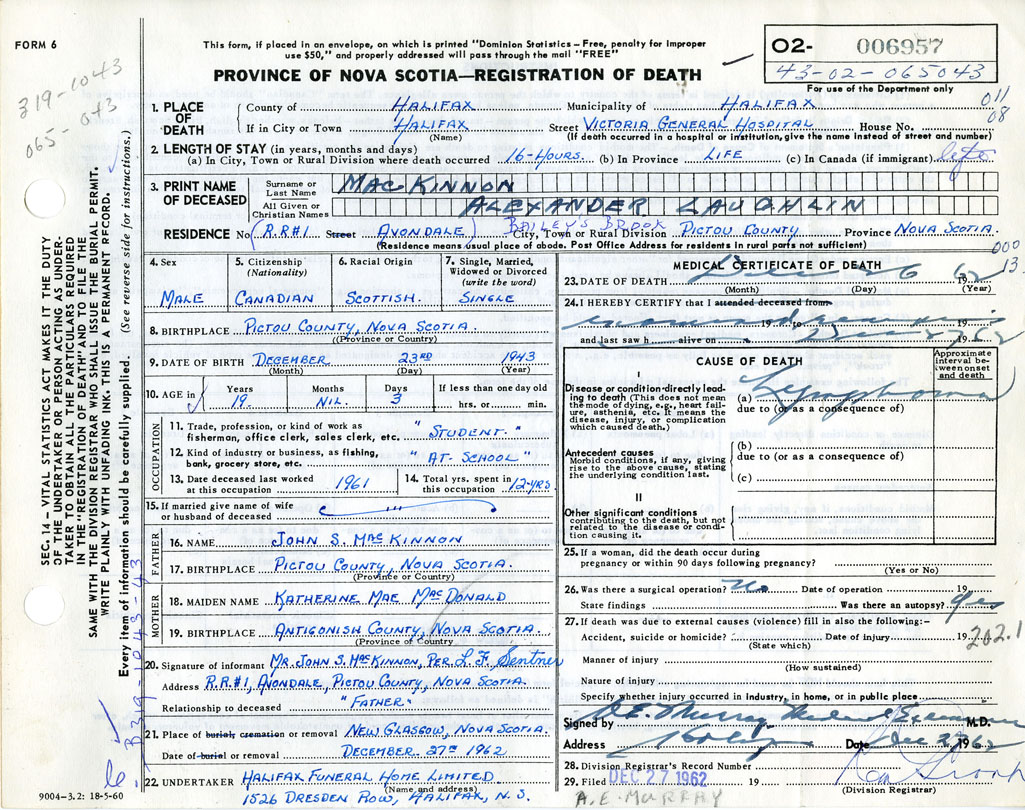 FORM 6
This form, if placed in an envelope, on which is printed "Dominion Statistics – Free, penalty for improper
use $50," and properly addressed will pass through the mail "FREE"
PROVINCE OF NOVA SCOTIA—REGISTRATION OF DEATH
O2- 006957
43-02-065043
For use of the Department only
319-1043
065-043
011
08
SEC. 14 – VITAL STATISTICS ACT MAKES IT THE DUTY
OF THE UNDERTAKER OR PERSON ACTING AS UNDER-
TAKER "TO OBTAIN ALL THE PARTICULARS REQUIRED
IN THE "REGISTRATION OF DEATH" AND TO FILE THE
SAME WITH THE DIVISION REGISTRAR WHO SHALL ISSUE THE BURIAL PERMIT.
WRITE PLAINLY WITH UNFADING INK. THIS IS A PERMANENT RECORD.
Every item of information should be carefully supplied. (See reverse side for instructions.)
B319-1043-43
1. PLACE OF DEATH County of HALIFAX Municipality of HALIFAX
If in City or Town HALIFAX Street VICTORIA GENERAL HOSPITAL House No.
(Name) (If death occurred in a hospital or institution, give the name instead of street and number)
2. LENGTH OF STAY (in years, months and days)
(a) In City, Town or Rural Division where death occurred 16-HOURS. (b) In Province LIFE (c) In Canada (if immigrant) life
3. PRINT NAME OF DECEASED Surname or Last Name MACKINNON
All Given or Christian Names ALEXANDER LAUGHLIN
RESIDENCE No (R.R#1 Street AVONDALE) BAILEY'S BROOK City, Town or Rural Division PICTOU COUNTY Province NOVA SCOTIA.
(Residence means usual place of abode. Post Office Address for residents in rural parts not sufficient)
000
13
4. Sex MALE
5. Citizenship (Nationality) CANADIAN
6. Racial Origin SCOTTISH.
7. Single, Married, Widowed or Divorced (write the word) SINGLE
8. BIRTHPLACE PICTOU COUNTY, NOVA SCOTIA.
(Province or Country)
9. DATE OF BIRTH DECEMBER 23RD 1943
(Month) (Day) (Year)
10. AGE in Years 19. Months NIL. Days 3 If less than one day old hrs. or min.
OCCUPATION
11. Trade, profession, or kind of work as
fisherman, office clerk, sales clerk, etc. "STUDENT."
12. Kind of industry or business, as fishing,
bank, grocery store, etc. "AT-SCHOOL"
13. Date deceased last worked at this occupation 1961
14. Total yrs. spent in this occupation 12-YRS.
15. If married give name of wife
or husband of deceased "'
FATHER
16. NAME JOHN S. MACKINNON
17. BIRTHPLACE PICTOU COUNTY, NOVA SCOTIA.
(Province or Country)
MOTHER
18. MAIDEN NAME KATHERINE MAE MACDONALD
19. BIRTHPLACE ANTIGONISH COUNTY, NOVA SCOTIA.
(Province of Country)
20. Signature of informant MR. JOHN S. MACKINNON, PER. L. F. Sentner
Address R.R.#1, AVONDALE, PICTOU COUNTY, NOVA SCOTIA.
Relationship to deceased "FATHER"
21. Place of burial, cremation or removal NEW GLASGOW, NOVA SCOTIA.
Date of burial or removal DECEMBER. 27TH 1962
22. UNDERTAKER HALIFAX FUNERAL HOME LIMITED
(Name and address)
1526 DRESDEN ROW, HALIFAX, N.S.
9004–3.2: 18-5-60
MEDICAL CERTIFICATE OF DEATH
23. DATE OF DEATH Dec 26 62
(Month) (Day) (Year)
24. I HEREBY CERTIFY that I attended deceased from
19 to 19
and last saw h alive on 19
CAUSE OF DEATH
Approximate interval between onset and death
I
Disease or condition directly lead-
ing to death (This does not mean
the mode of dying, e.g., heart fail-
ure, asthenia, etc. It means the
disease, injury, or complication
which caused death.)
(a) Lymphoma
due to (or as a consequence of)
Antecedent causes
Morbid conditions, if any, giving
rise to the above cause, stating
the underlying condition last.
(b)
due to (or as a consequence of)
(c)
II
Other significant conditions
contributing to the death, but not
related to the disease or condi-
tion causing it.
25. If a woman, did the death occur during
pregnancy or within 90 days following pregnancy?
(Yes or No)
26. Was there a surgical operation? No Date of operation 19
State findings Was there an autopsy? Yes
27. If death was due to external causes (violence) fill in also the following:–
Accident, suicide or homicide? Date of injury 19
(State which)
202.1
Manner of injury
(How sustained)
Nature of injury
Specify whether injury occurred in Industry, in home, or in public place
Signed by A.E. Murray Medical Examiner M.D.
Address Date Dec 27 1962
28. Division Registrar's Record Number
29. Filed DEC 27 1962 19
(Division Registrar)
A.E. MURRAY